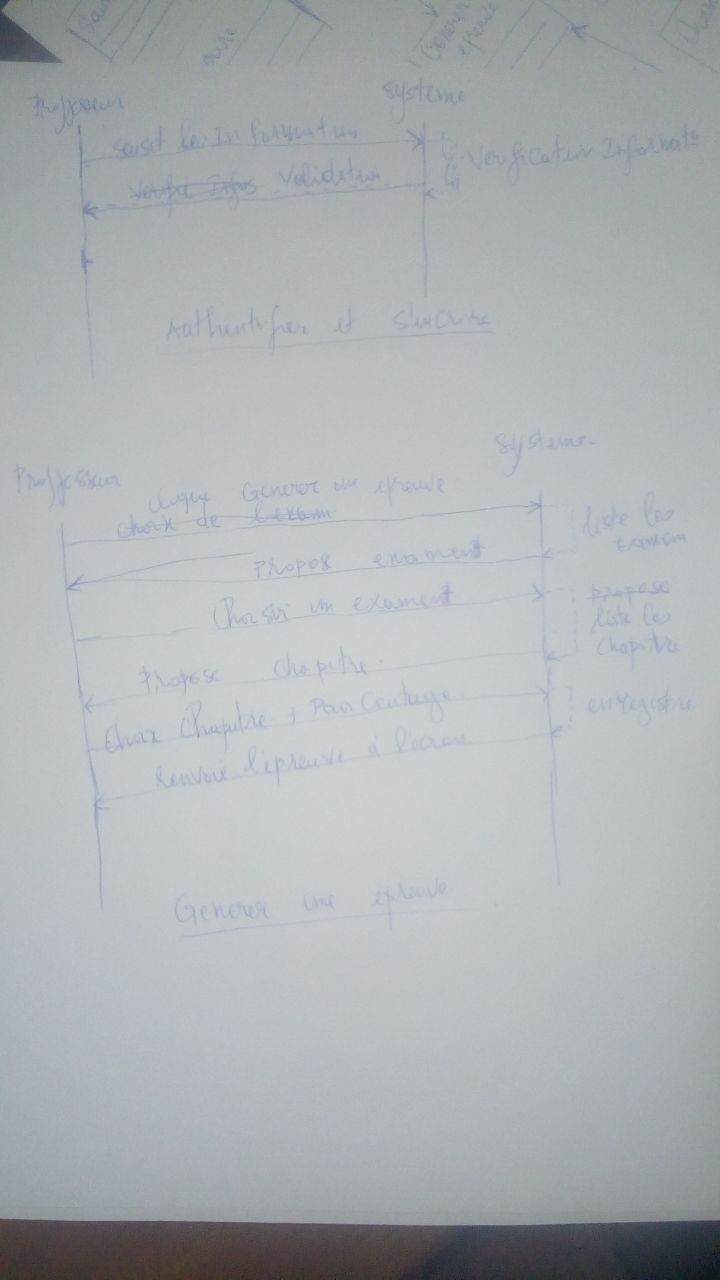 Générer
épreuve
Professeur
Systeme
saisit les Information
Verification Informat
Verifie Infos Validation
Authentifier et S'inscrire
Systeme
Proffesseur
clique Generer un epreuve
choix de l'exam
liste les
examen
Propose examen
propose
Choisir un examen
liste les
chapitre
Propose chapitre
Choix Chapitre + Pourcentage
enregistre
Renvoie l'épreuve à l'écran
Generer une epreuve